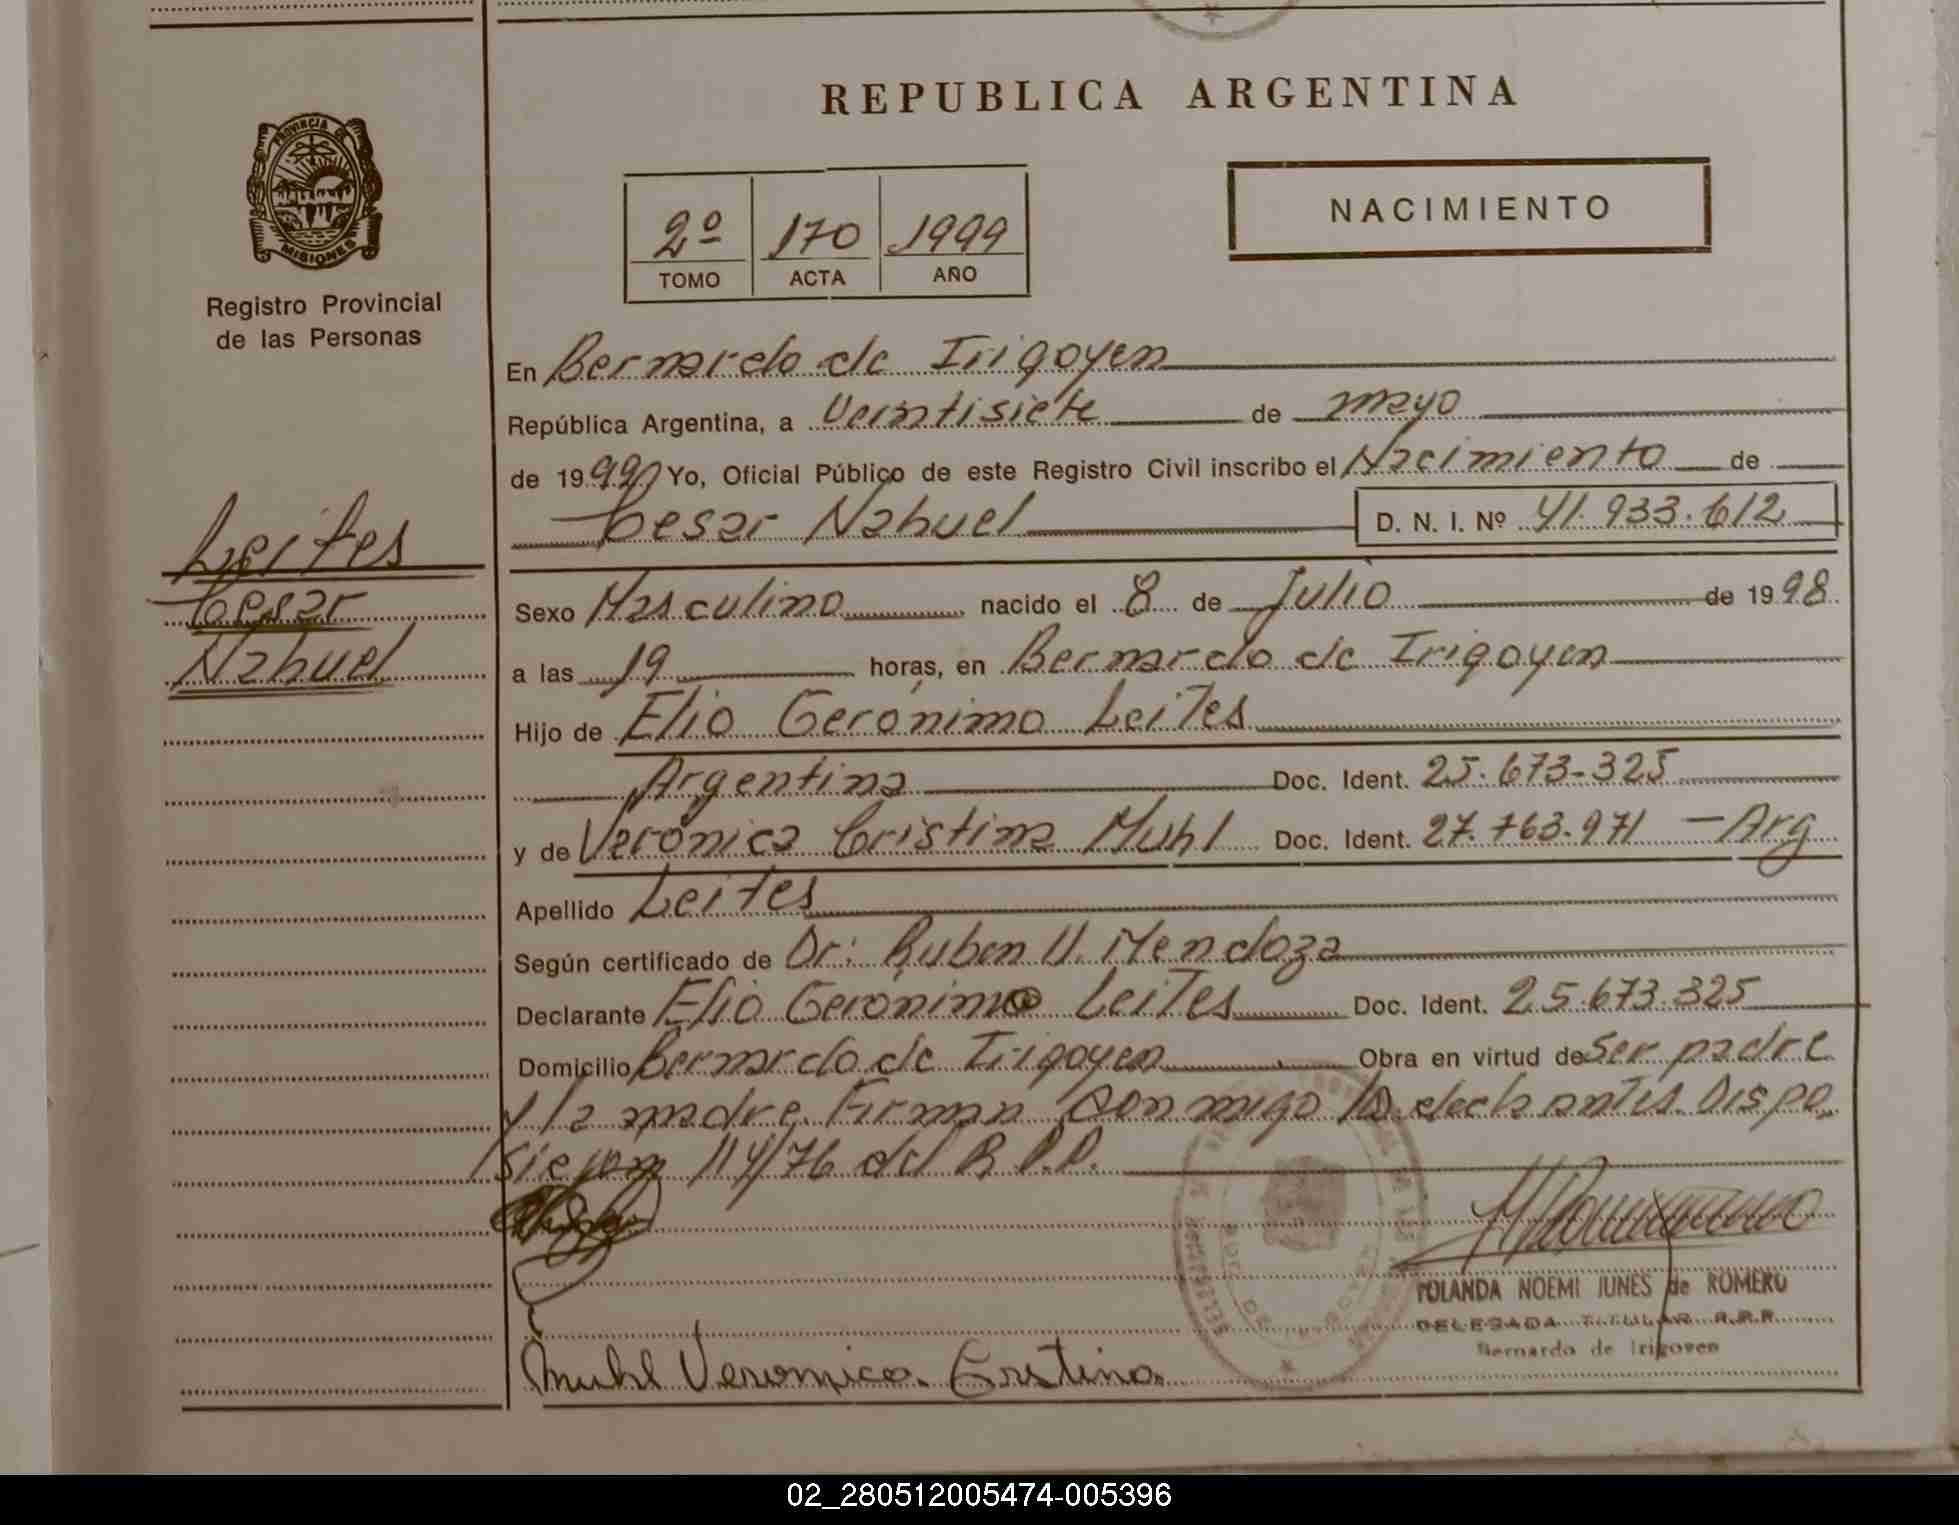 REPUBLICA ARGENTINA
PROVINCIA DE
MISIONES
Registro Provincial
de las Personas
2º 170 1999
TOMO ACTA AÑO
NACIMIENTO
En Bernardo de Irigoyen
República Argentina, a Veintisiete de mayo
de 1999 Yo, Oficial Público de este Registro Civil inscribo el Nacimiento de
Cesar Nahuel D. N. I. Nº 41.933.612
Leites
Cesar
Nahuel
Sexo Masculino nacido el 8 de Julio de 1998
a las 19 horas, en Bernardo de Irigoyen
Hijo de Elio Gerónimo Leites
Argentina Doc. Ident. 25.673-325
y de Verónica Cristina Muhl Doc. Ident. 27.763.971 - Arg
Apellido Leites
Según certificado de Dr: Ruben U. Mendoza
Declarante Elio Gerónimo Leites Doc. Ident. 25.673.325
Domicilio Bernardo de Irigoyen Obra en virtud de ser padre
y la madre. Firman conmigo los Dispo
114/76 del R.P.P.
YOLANDA NOEMI JUNES de ROMERO
DELEGADA TITULAR R.P.P.
Bernardo de Irigoyen
Muhl Veronica Cristina
02_280512005474-005396